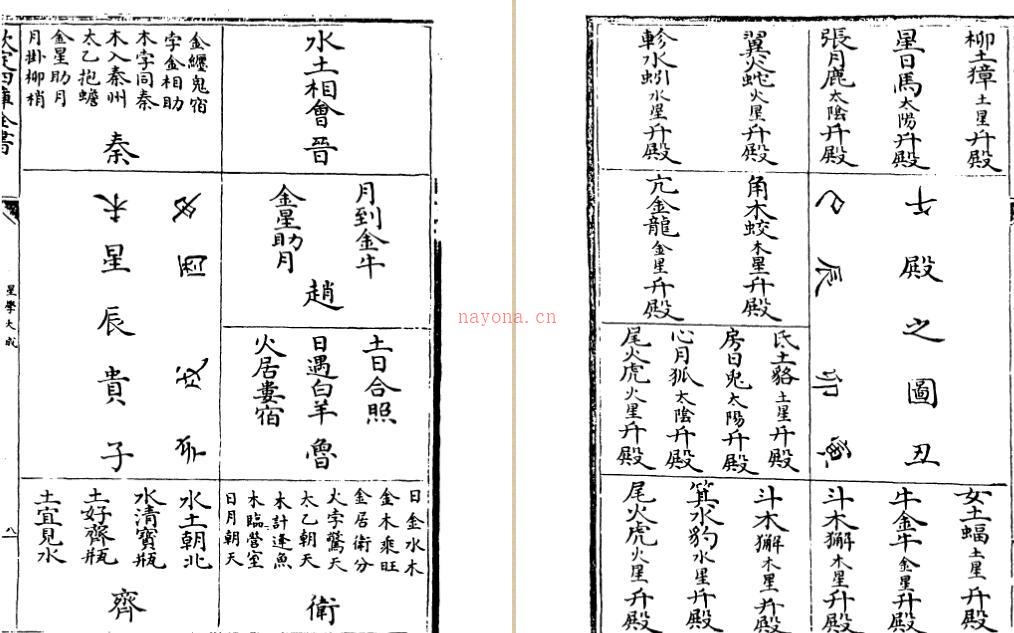 柳土獐土星升殿
星日馬太陽升殿
張月鹿太陰升殿
翼火蛇火星升殿
軫水蚓水星升殿
升殿之圖丑
巳辰卯寅
角木蛟木星升殿
亢金龍金星升殿
氐土貉土星升殿
房日兔太陽升殿
心月狐太陰升殿
尾火虎火星升殿
女土蝠土星升殿
牛金牛金星升殿
斗木獬木星升殿
斗木獬木星升殿
箕水豹水星升殿
尾火虎火星升殿
水土相會晉
金纏鬼宿
孛金相助
木孛同秦
木入秦州
太乙抱蟾
金星助月
月掛柳梢
秦
月到金牛
金星助月
趙
土日合照
日遇白羊
火居婁宿
魯
酉戌亥
星辰貴子
日金水木
金木乘旺
金居衛分
火孛驚天
太乙朝天
木計逢魚
木臨營室
日月朝天
衛
水土朝北
水清寶瓶
土好齊瓶
土宜見水
齊
欽定四庫全書
星學大成
八
nayona.cn